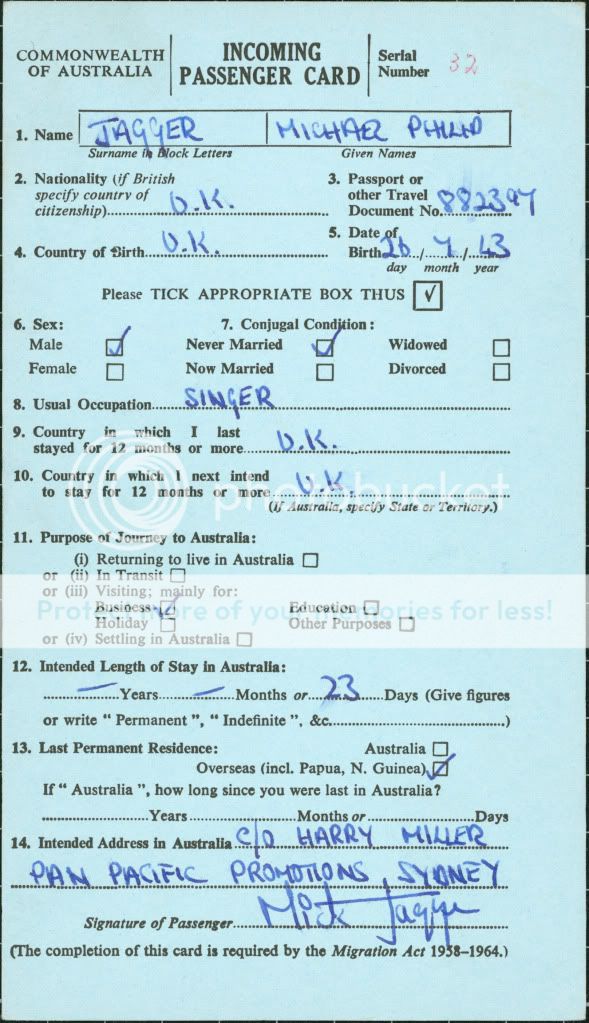 COMMONWEALTH OF AUSTRALIA
INCOMING PASSENGER CARD
Serial Number 32
1. Name JAGGER MICHAEL PHILIP
Surname in Block Letters Given Names
2. Nationality (if British specify country of citizenship) U.K.
3. Passport or other Travel Document No. 882397
4. Country of Birth U.K.
5. Date of Birth 26 / 7 / 43
day month year
Please TICK APPROPRIATE BOX THUS ✓
6. Sex: 7. Conjugal Condition:
Male ✓ Never Married ✓ Widowed
Female Now Married Divorced
8. Usual Occupation SINGER
9. Country in which I last stayed for 12 months or more U.K.
10. Country in which I next intend to stay for 12 months or more U.K.
(If Australia, specify State or Territory.)
photobucket
11. Purpose of Journey to Australia:
(i) Returning to live in Australia
or (ii) In Transit
or (iii) Visiting; mainly for:
Business ✓ Education
Protect more of your memories for less!
Holiday Other Purposes
or (iv) Settling in Australia
12. Intended Length of Stay in Australia:
— Years — Months or 23 Days (Give figures
or write "Permanent", "Indefinite", &c. )
13. Last Permanent Residence: Australia
Overseas (incl. Papua, N. Guinea) ✓
If "Australia", how long since you were last in Australia?
Years Months or Days
14. Intended Address in Australia C/O HARRY MILLER
PAN PACIFIC PROMOTIONS, SYDNEY
Signature of Passenger Mick Jagger
(The completion of this card is required by the Migration Act 1958-1964.)